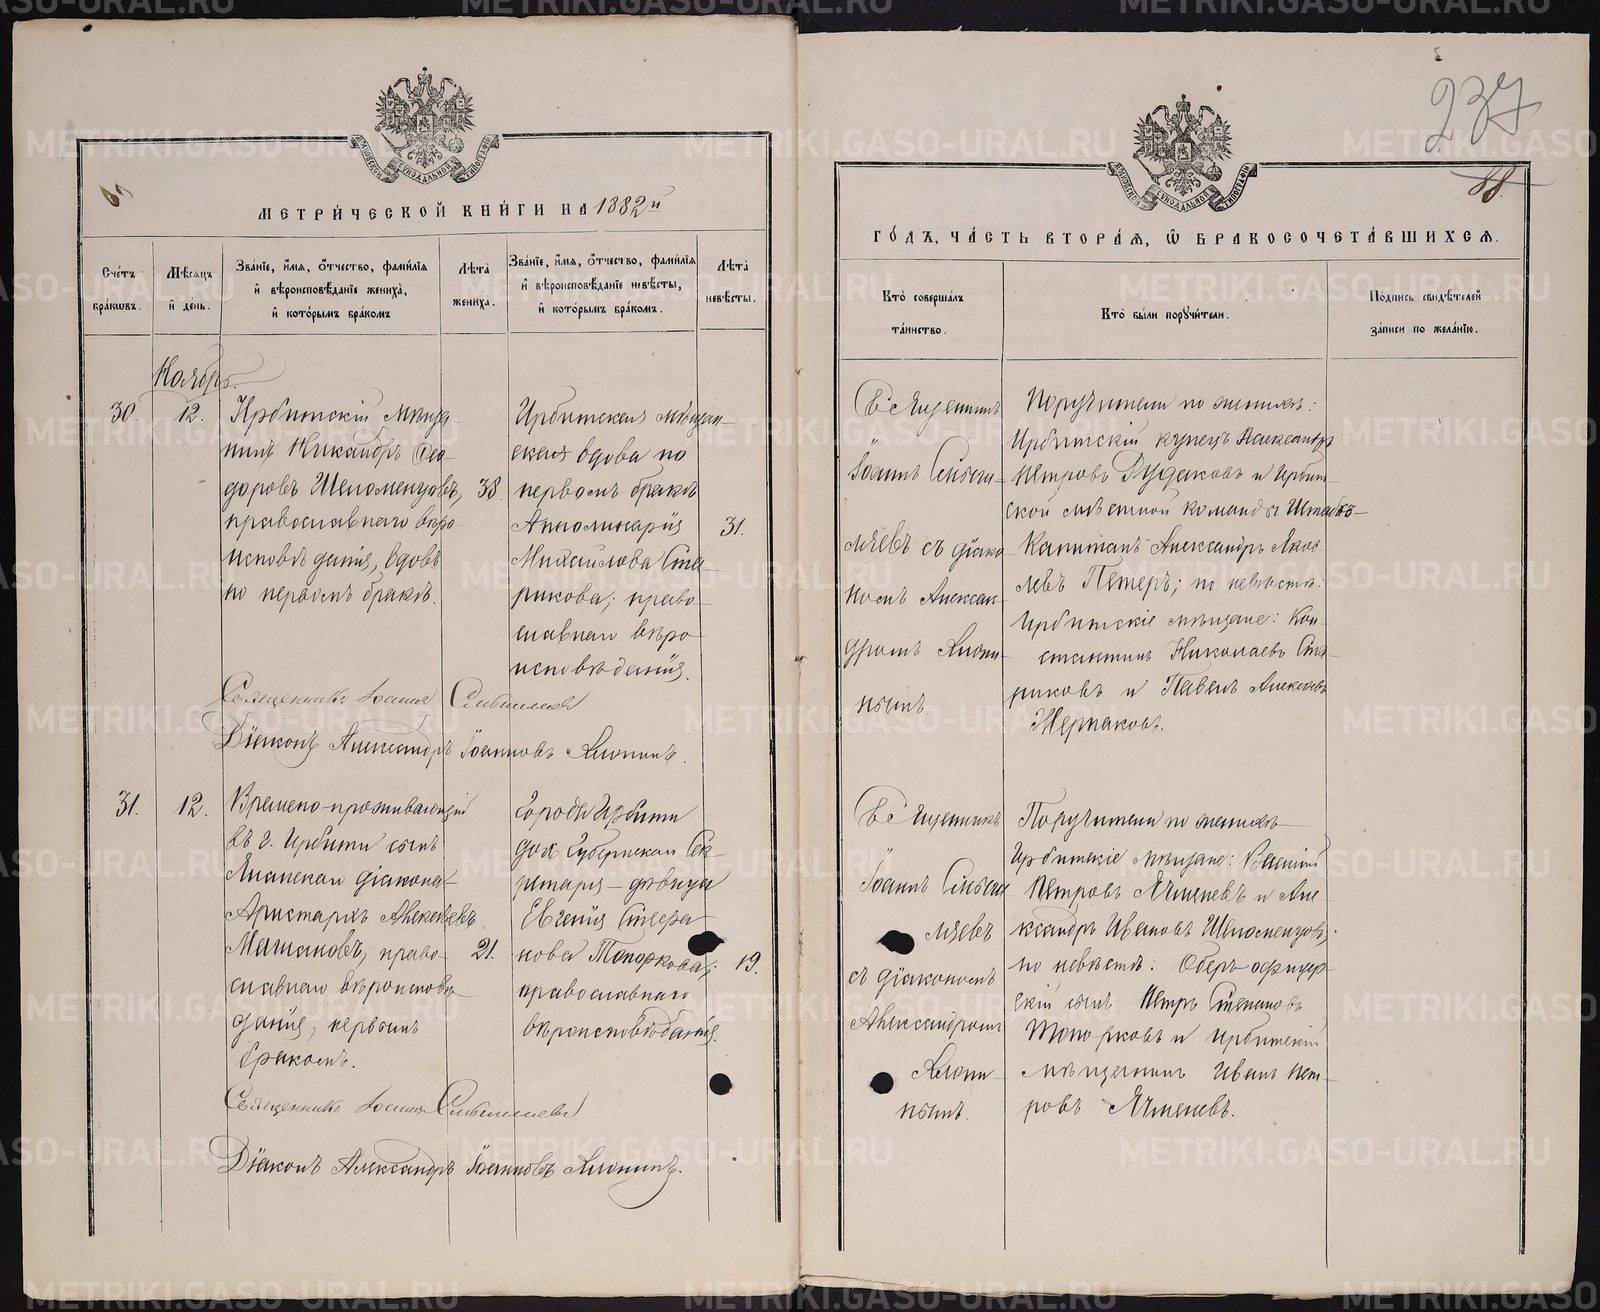 МЕТРИ́ЧЕСКОЙ КНИ́ГИ НА 1882й
Сче́тъ бра́кωвъ.
Мѣ́сяцъ и҆ де́нь.
Зва́нїе, и҆́мя, ѻ҆́тчество, фами́лїя и҆ вѣроисповѣ́данїе жениха̀, и҆ кото́рымъ бра́комъ
Лѣ́та жениха̀.
Зва́нїе, и҆́мя, ѻ҆́тчество, фами́лїя и҆ вѣроисповѣ́данїе невѣ́сты, и҆ кото́рымъ бра́комъ.
Лѣ́та невѣ́сты.
Ноябрь.
30.
12.
Ирбитскій мѣща-
нинъ Никандръ Ѳео-
доровъ Шеломенцовъ,
православнаго вѣро
исповѣданія, вдовъ
по первомъ бракѣ.
38.
Ирбитская мѣщан-
ская вдова по
первомъ бракѣ
Апполинарія
Михайлова Ста-
рикова; право-
славнаго вѣро-
исповѣданія.
31.
Священникъ Іоаннъ
Діаконъ Александръ Іоанновъ
31.
12.
Времено-проживающій
въ г. Ирбити сынъ
діакона
Аристархъ Алексѣевъ
право-
славнаго вѣроисповѣ-
данія, первымъ
бракомъ.
21.
Города Ирбити
дочь Губернскаго Сек-
ретаря - дѣвица
Евгенія Степа-
нова Топоркова;
православнаго
вѣроисповѣданія.
19.
Священникъ Іоаннъ
Діаконъ Александръ Іоанновъ
237
88.
ГО́ДЪ, ЧА́СТЬ ВТОРА́Я, Ѡ҆ БРАКОСОЧЕТА́ВШИХСЯ.
Кто̀ соверша́лъ та́инство.
Кто̀ бы́ли порꙋчи́тели.
По́дпись свидѣ́телей за́писи по жела́нїю.
Священникъ
Іоаннъ
съ діако-
номъ Алексан-
дромъ
Поручители по женихѣ:
Ирбитскій купецъ Александръ
Петровъ Дудаковъ и Ирбит-
ской мѣстной команды Штабсъ-
Капитанъ Александръ Яков-
левъ Петеръ; по невѣстѣ:
Ирбитскіе мѣщане: Кон-
стантинъ Николаевъ Ста-
риковъ и Павелъ Алексѣевъ
Жернаковъ.
Священникъ
Іоаннъ
съ діакономъ
Александромъ
Поручители по женихѣ
Ирбитскіе мѣщане: Василій
Петровъ Ячменевъ и Але-
ксандръ Ивановъ Шеломенцовъ;
по невѣстѣ: Оберъ офицер-
скій сынъ Петръ Степановъ
Топорковъ и Ирбитскій
мѣщанинъ Иванъ Пет-
ровъ Ячменевъ.
METRIKI.GASO-URAL.RU